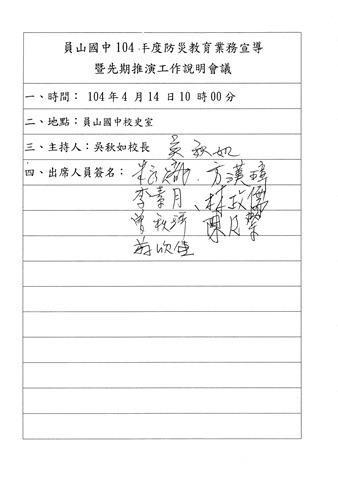 員山國中 104 年度防災教育業務宣導
暨先期推演工作說明會議
一、時間： 104 年 4 月 14 日 10 時 00 分
二、地點：員山國中校史室
三、主持人：吳秋如校長 吳秋如
四、出席人員簽名： 方漢璋
李素月、林政儒
曾秋
欣佳